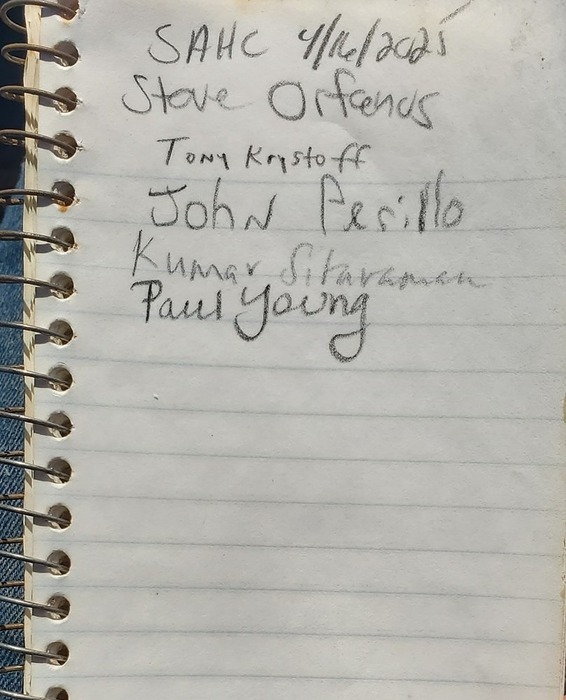 SAHC 4/16/2025
Steve Orfanos
Tony Krystoff
John Perillo
Kumar Sitaraman
Paul Young